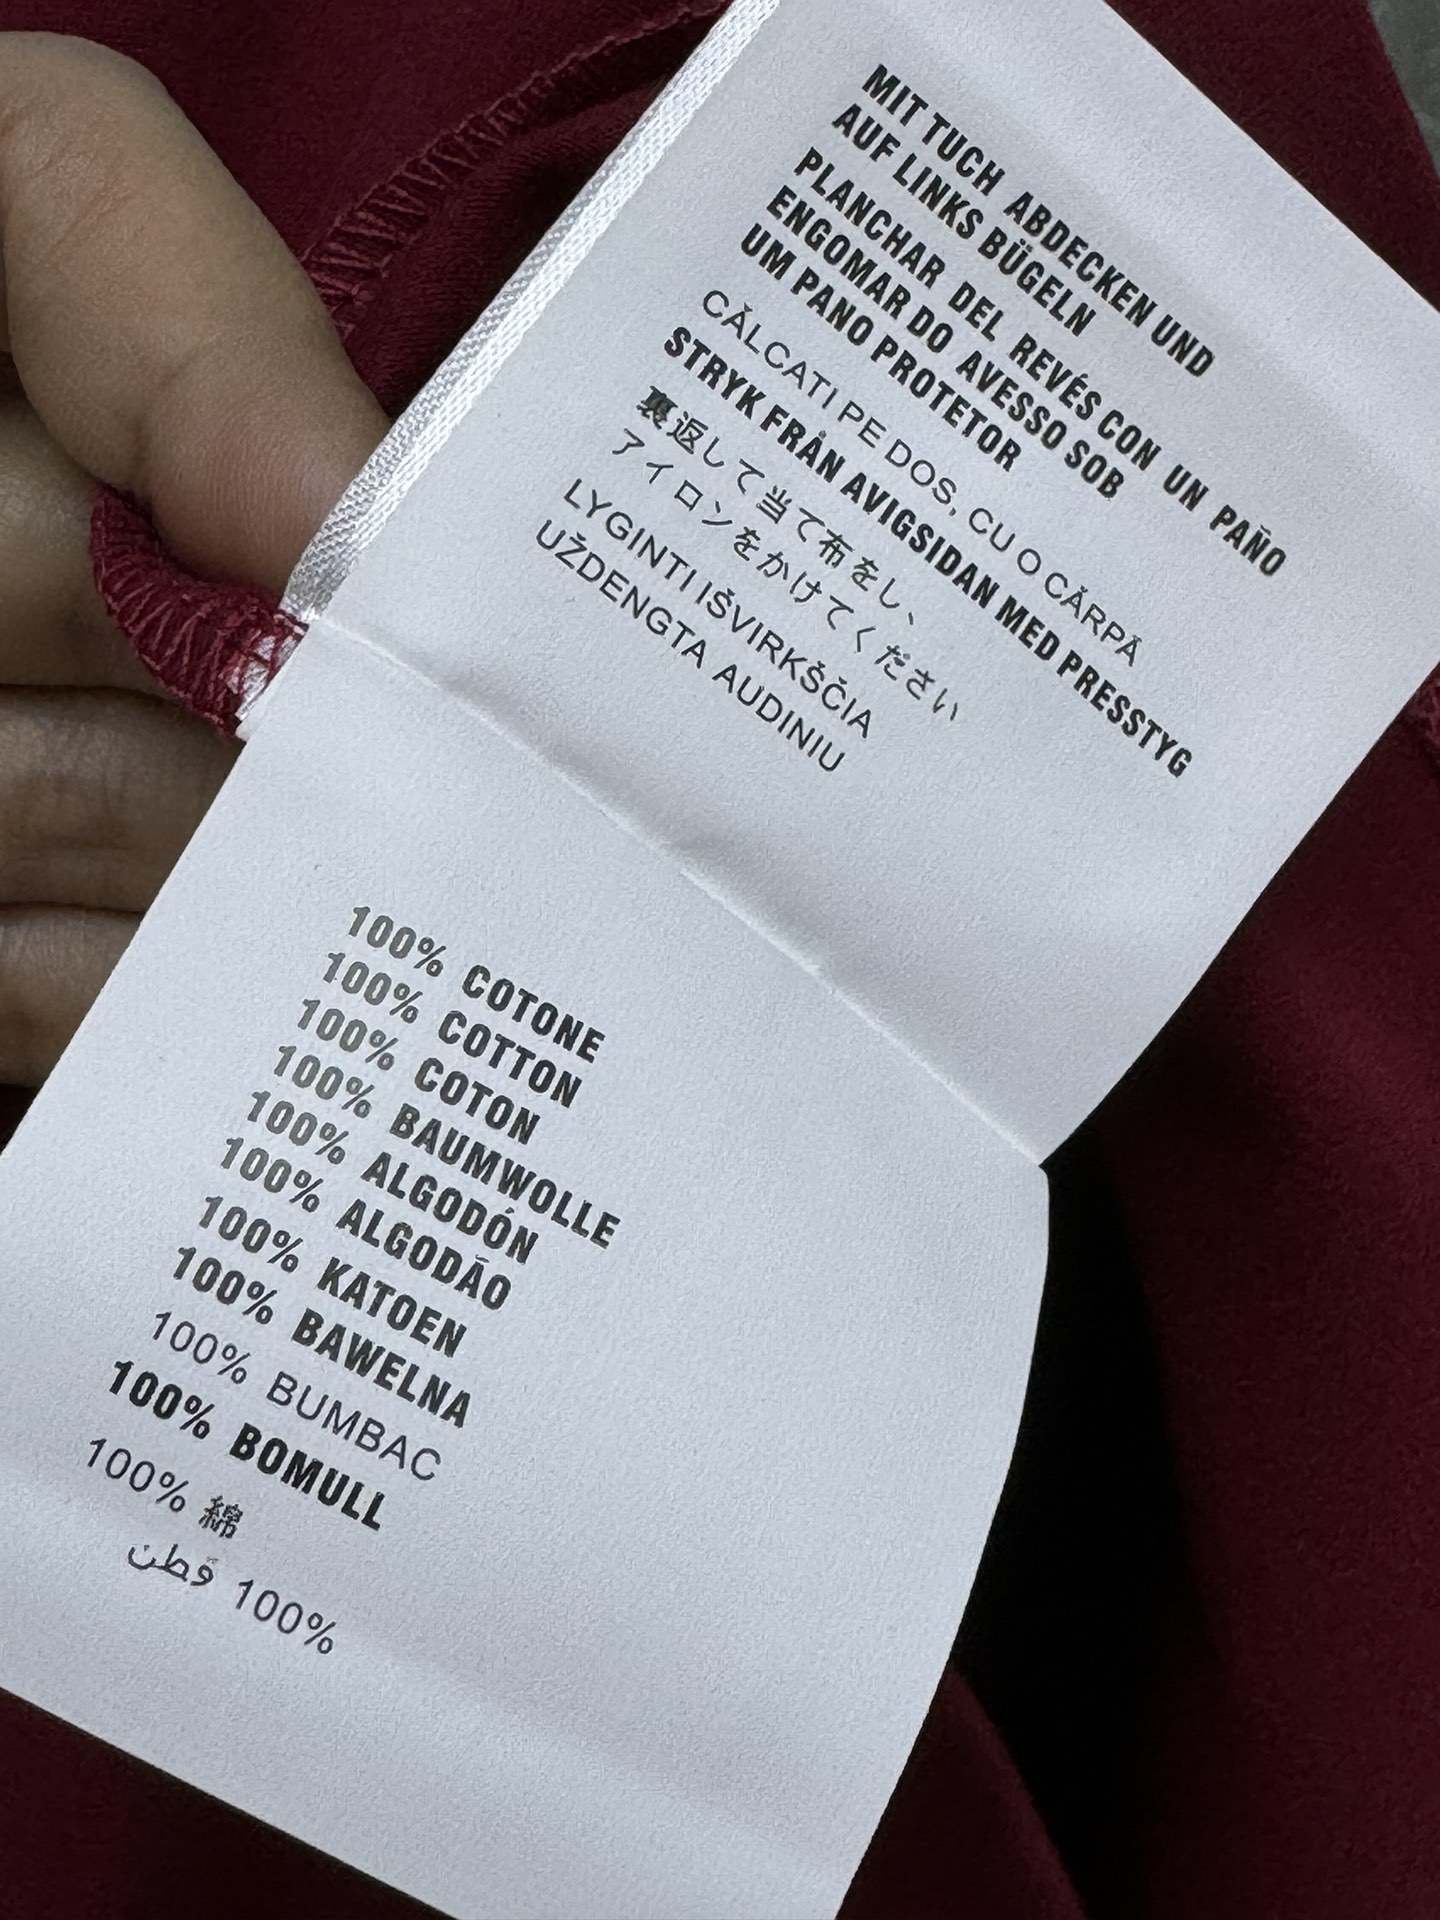 MIT TUCH ABDECKEN UND
AUF LINKS BÜGELN
PLANCHAR DEL REVÉS CON UN PAÑO
ENGOMAR DO AVESSO SOB
UM PANO PROTETOR
CĂLCATI PE DOS, CU O CĂRPĂ
STRYK FRÅN AVIGSIDAN MED PRESSTYG
裏返して当て布をし、
アイロンをかけてください
LYGINTI IŠVIRKŠČIA
UŽDENGTA AUDINIU
100% COTONE
100% COTTON
100% COTON
100% BAUMWOLLE
100% ALGODÓN
100% ALGODÃO
100% KATOEN
100% BAWELNA
100% BUMBAC
100% BOMULL
100% 綿
100% قطن